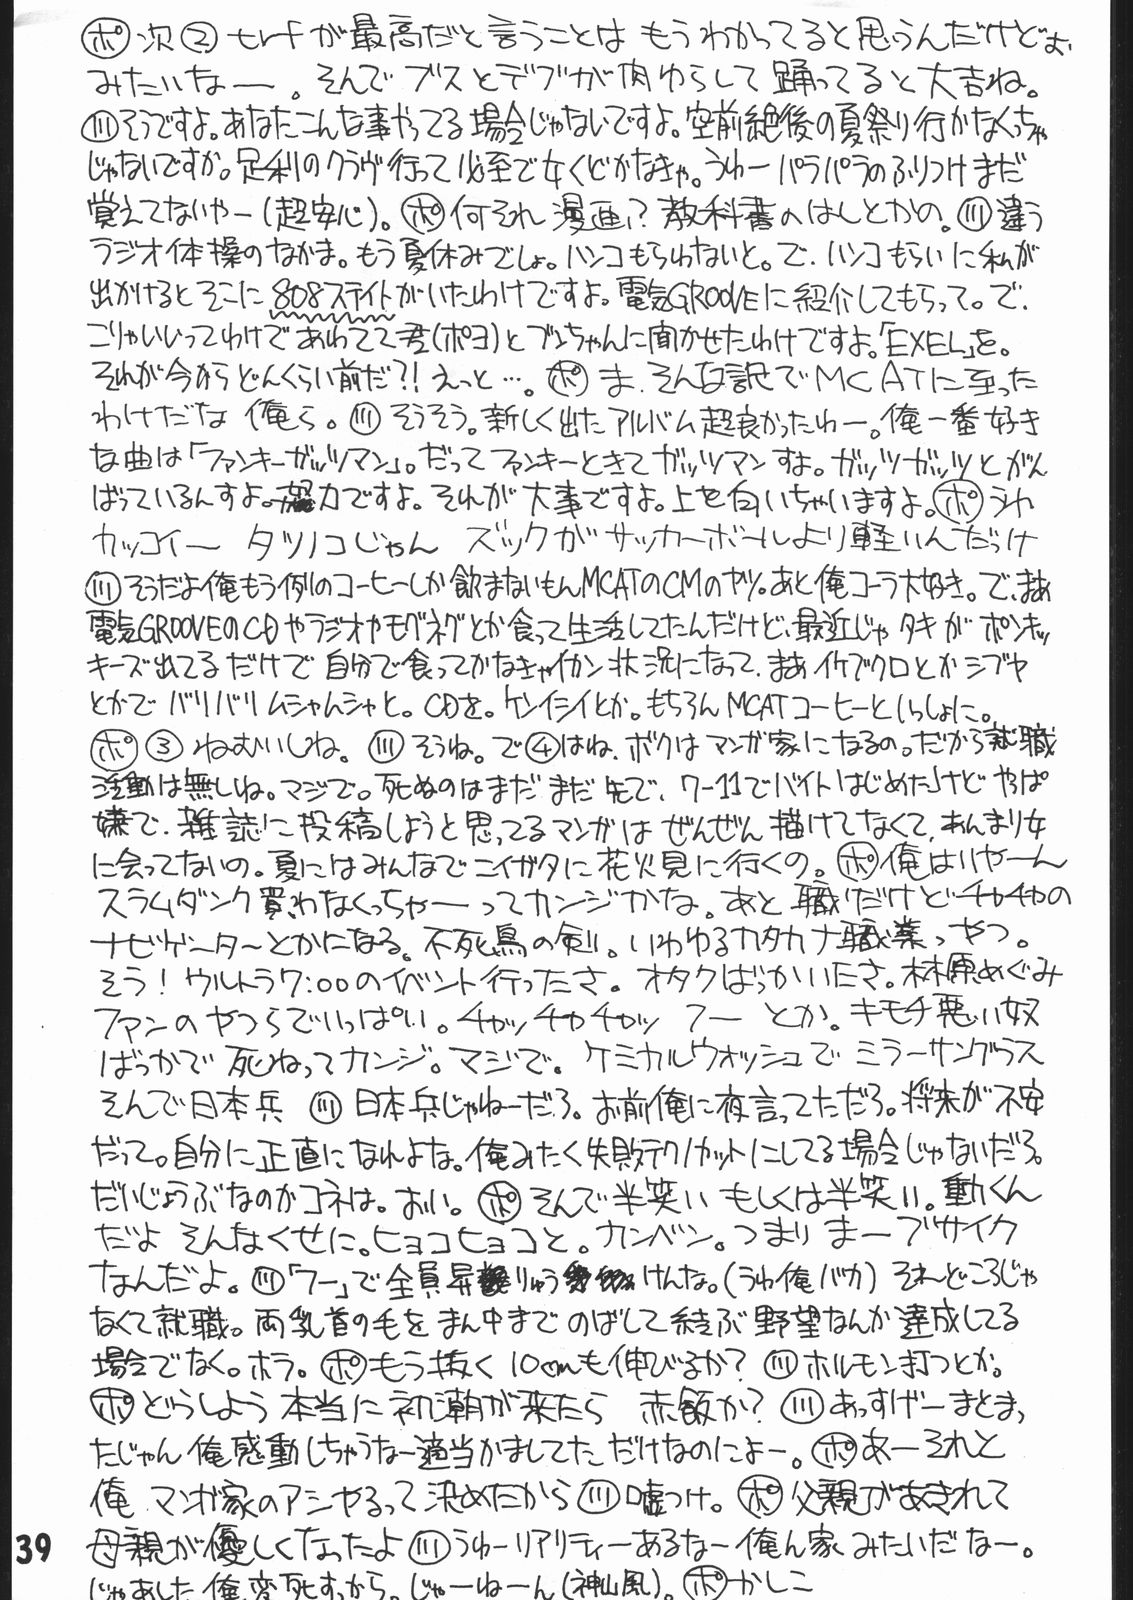 ポ 次② trfが最高だと言うことは もうわかってると思うんだけどぉ
みたいなー。そんで ブスとデブが肉ゆらして 踊ってると大吉ね。
川 そうですよ。あなたこんな事やってる場合じゃないですよ。空前絶後の夏祭り行かなくっちゃ
じゃないですか。足利のクラヴ行って必至で女くどかなきゃ。うわー パラパラのふりつけまだ
覚えてないやー(超安心)。ポ 何それ 漫画？教科書のはしとかの。川 違う
ラジオ体操のなかま。もう夏休みでしょ。ハンコもらわないと。で、ハンコもらいに私が
出かけるとそこに 808ステイトがいたわけですよ。電気GROOVEに紹介してもらって。で、
こりゃいいってわけで あわてて君(ポヨ)とブンちゃんに聞かせたわけですよ。「EXEL」を。
それが今からどんくらい前だ?! えっと…。ポ ま、そんな訳でMCATに至った
わけだな 俺ら。川 そうそう。新しく出たアルバム超良かったわー。俺一番好き
な曲は「ファンキーガッツマン」。だってファンキーときてガッツマンすよ。ガッツガッツとがん
ばっているんすよ。努力ですよ。それが大事ですよ。上を向いちゃいますよ。ポ うわ
カッコイー タツノコじゃん ズックがサッカーボールより軽いんだっけ
川 そうだよ俺もう例のコーヒーしか飲まないもんMCATのCMのヤツ。あと俺コーラ大好き。で、まぁ
電気GROOVEのCDやラジオやモグネグとか食って生活してたんだけど、最近じゃタキがポンキッ
キーズ出てるだけで自分で食ってかなきゃイカン状況になって、まあイケブクロとかシブヤ
とかでバリバリムシャムシャと。CDを。ケンイシイとか。もちろんMCATコーヒーといっしょに。
ポ ③ ねむいしね。川 そうね。で④はね、ボクはマンガ家になるの。だから就職
活動は無しね。マジで。死ぬのはまだまだ先で、ワー11でバイトはじめたけどやっぱ
嫌で、雑誌に投稿しようと思ってるマンガはぜんぜん描けてなくて、あんまり女
に会ってないの。夏にはみんなでニイガタに花火見に行くの。ポ 俺はいやーん
スラムダンク買わなくっちゃーってカンジかな。あと職だけどチャチャの
ナビゲーターとかになる。不死鳥の剣。いわゆるカタカナ職業っやつ。
そう！ウルトラ7:00のイベント行ったさ。オタクばっかいたさ。林原めぐみ
ファンのやつらでいっぱい。チャッ チャチャッ フー とか。キモチ悪い奴
ばっかで死ねってカンジ。マジで。ケミカルウォッシュでミラーサングラス
そんで日本兵 川 日本兵じゃねーだろ。お前俺に夜言ってただろ。将来が不安
だって。自分に正直になれよな。俺みたく失敗テクノカットにしてる場合じゃないだろ。
だいじょうぶなのかコネは。おい。ポ そんで半笑い もしくは半笑い。動くん
だよ そんなくせに。ヒョコヒョコと。カンベン。つまり まーブサイク
なんだよ。川「ワー」で全員昇りゅうけんな。(うわ俺バカ) それどころじゃ
なくて就職。両乳首の毛をまん中までのばして結ぶ野望なんか達成してる
場合でなく。ホラ。ポ もう抜く 10cmも伸びるか？川 ホルモン打つとか。
ポ どうしよう 本当に初潮が来たら 赤飯か？川 あっすげーまとまっ
たじゃん 俺感動しちゃうなー適当かましてた だけなのによー。ポ あーそれと
俺 マンガ家のアシやるって決めたから 川 嘘つけ。ポ 父親があきれて
母親が優しくなったよ 川 うわーリアリティーあるなー俺ん家みたいだなー。
じゃあした 俺変死すっから。じゃーねーん(神山風)。ポ かしこ
39